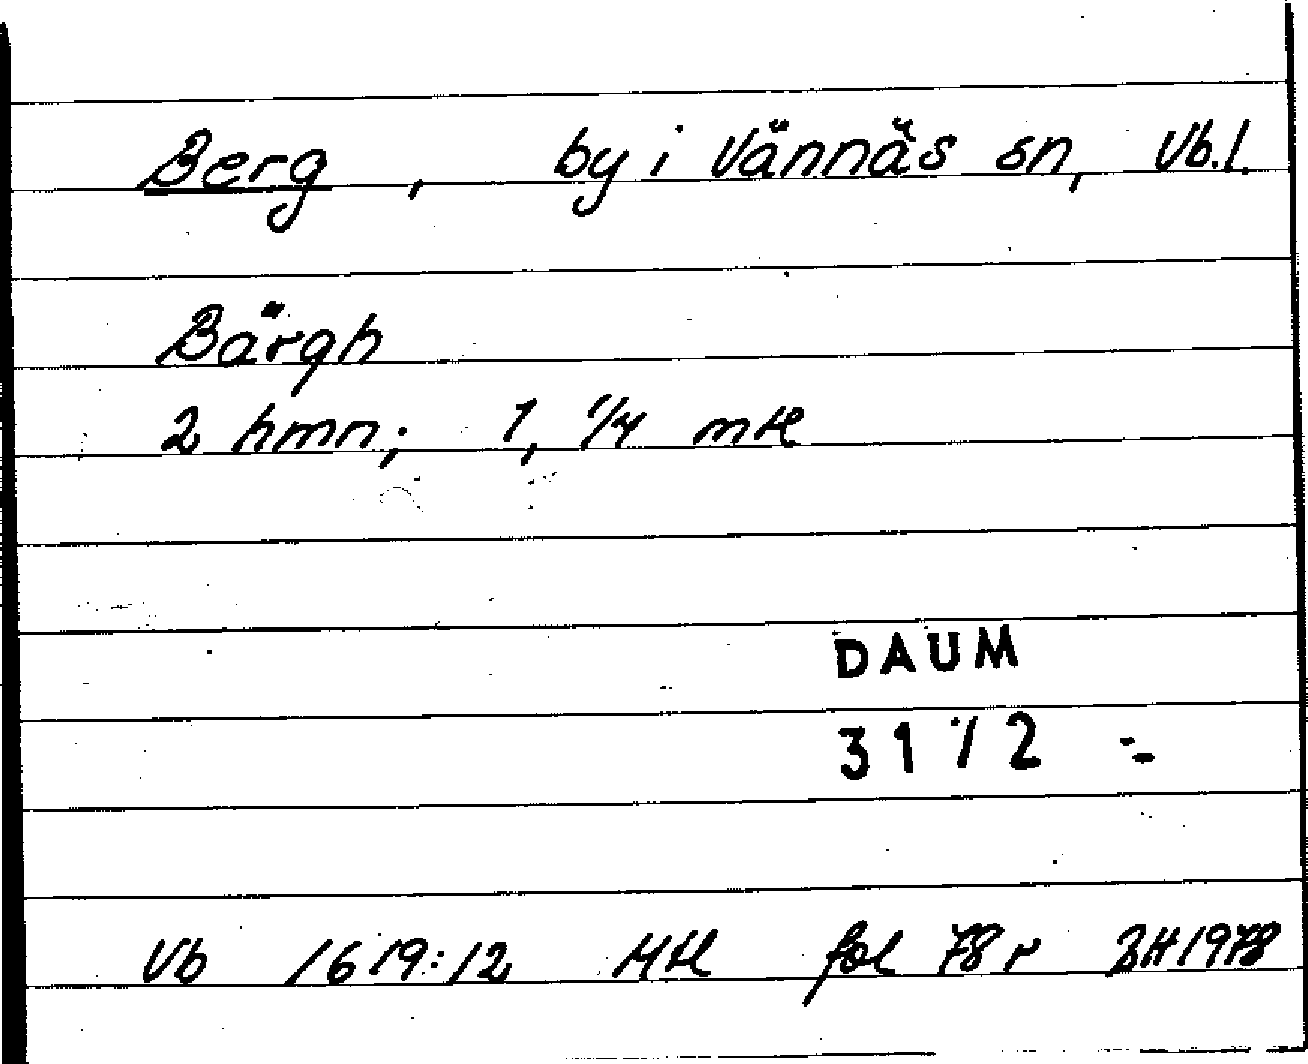 Berg, by i Vännäs sn, Vb.l.
Bärgh
2 hmn; 1, 1/4 mtl
DAUM
3172
Vb 1619:12 Mtl fol 78r BH 1978